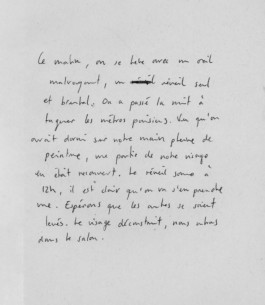 Ce matin, on se lève avec un œil
malvoyant, un réveil seul
et brutal. On a passé la nuit à
taguer les mètres parisiens. Vu qu'on
avait dormi sur notre main pleine de
peinture, une partie de notre visage
en était recouvert. Le réveil sonne à
12h, il est clair qu'on va s'en prendre
une. Espérons que les autres se soient
levés. Le visage déconstruit, nous allons
dans le salon.